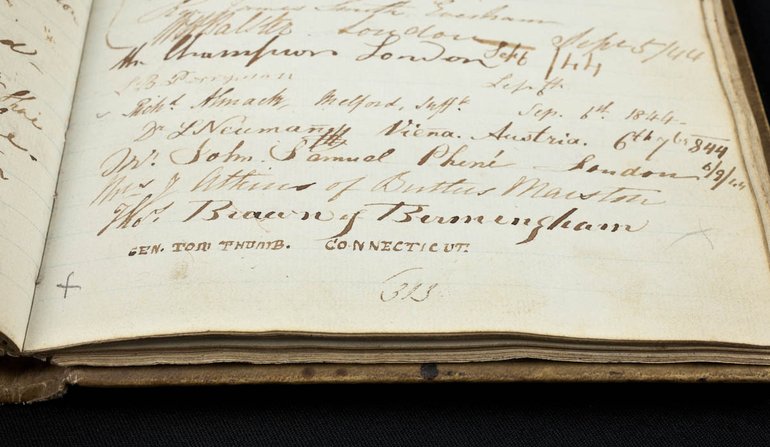 South Evesham
London Sept 5/44
Mr Champion London Sept 6/44
Sept
Richd. Almack, Melford, Suffk. Sep. 6th. 1844
Dr. L Neumann Viena. Austria. 6th 7br 844
Mr. John Samuel Phené London 6/9/44
Miss J Atkins of Butlers Marston
Thos. Brown of Bermingham
GEN. TOM THUMB. CONNECTICUT.
313